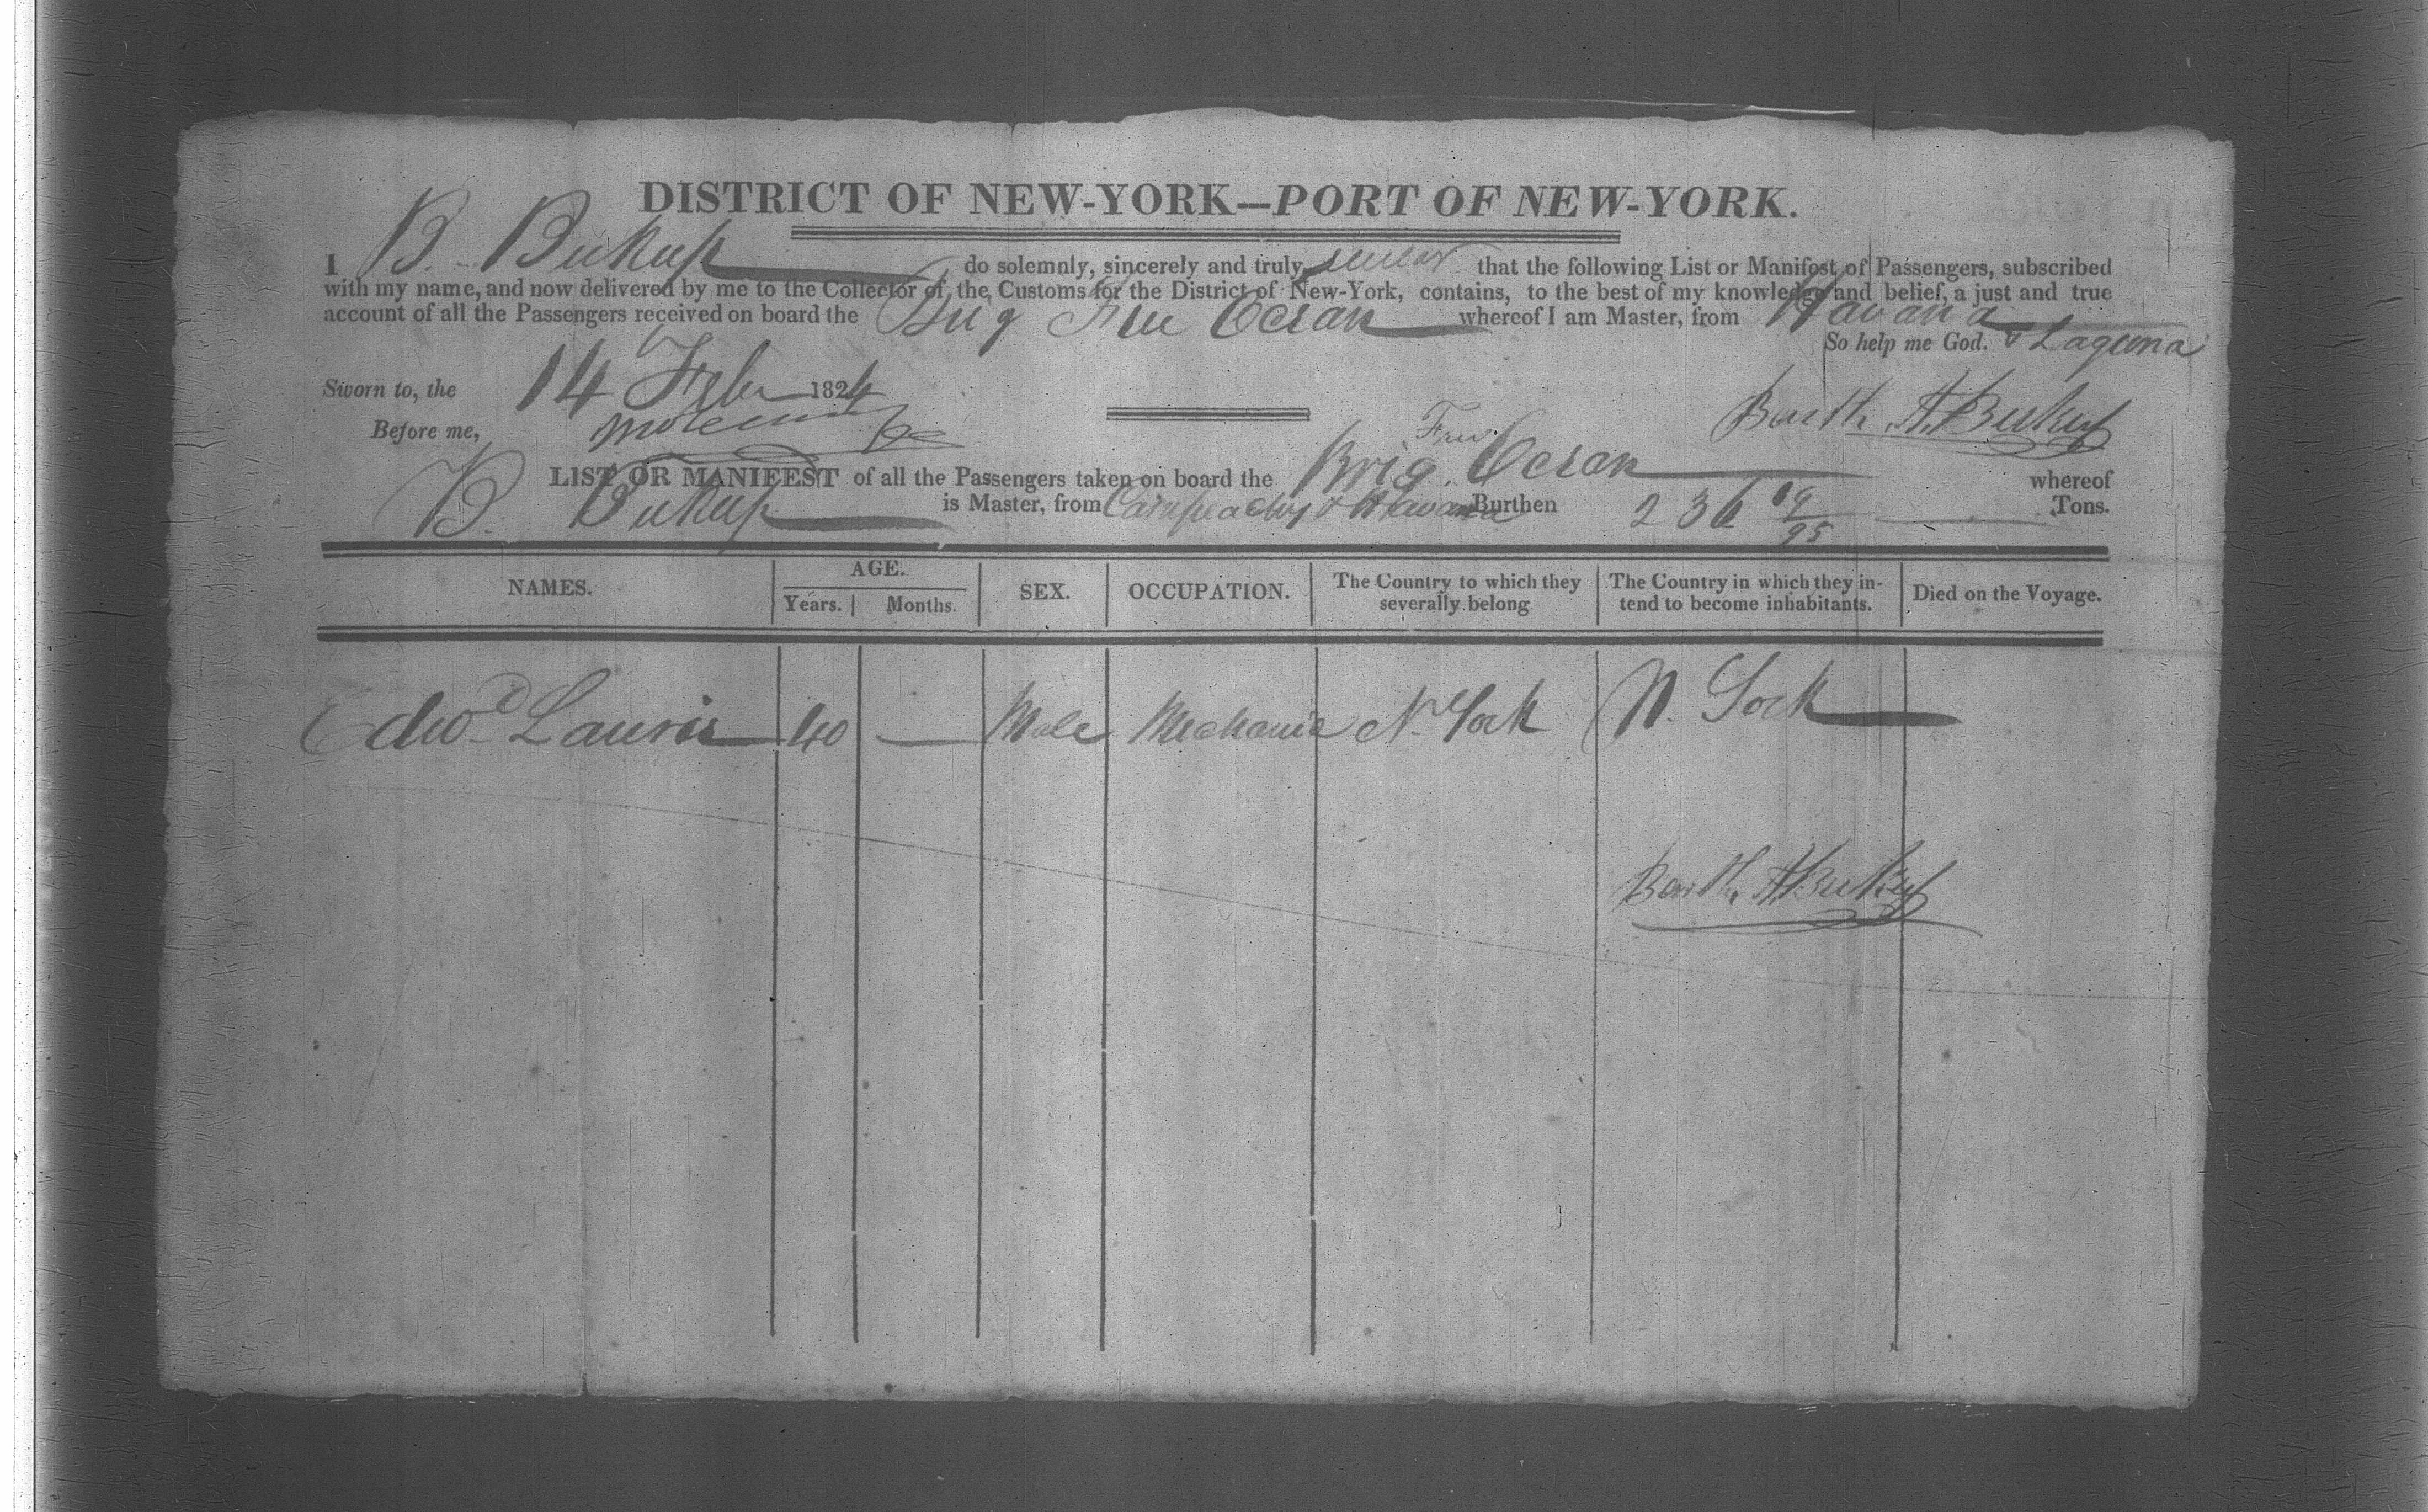 DISTRICT OF NEW-YORK—PORT OF NEW-YORK.
I B. Bukup do solemnly, sincerely and truly swear that the following List or Manifest of Passengers, subscribed
with my name, and now delivered by me to the Collector of the Customs for the District of New-York, contains, to the best of my knowledge and belief, a just and true
account of all the Passengers received on board the Brig Free Ocean whereof I am Master, from Havana
So help me God. & Laguna
Sworn to, the 14 Feby 1824
Before me,
Barth A. Bukup
LIST OR MANIFEST of all the Passengers taken on board the Brig Free Ocean whereof
B. Bukup is Master, from Campeachy & Havana Burthen 236 09/95 Tons.
NAMES. AGE. Years. Months. SEX. OCCUPATION. The Country to which they severally belong The Country in which they intend to become inhabitants. Died on the Voyage.
Edwd Lauris 40 — Male Mechanic N. York N. York
Barth. A. Bukup